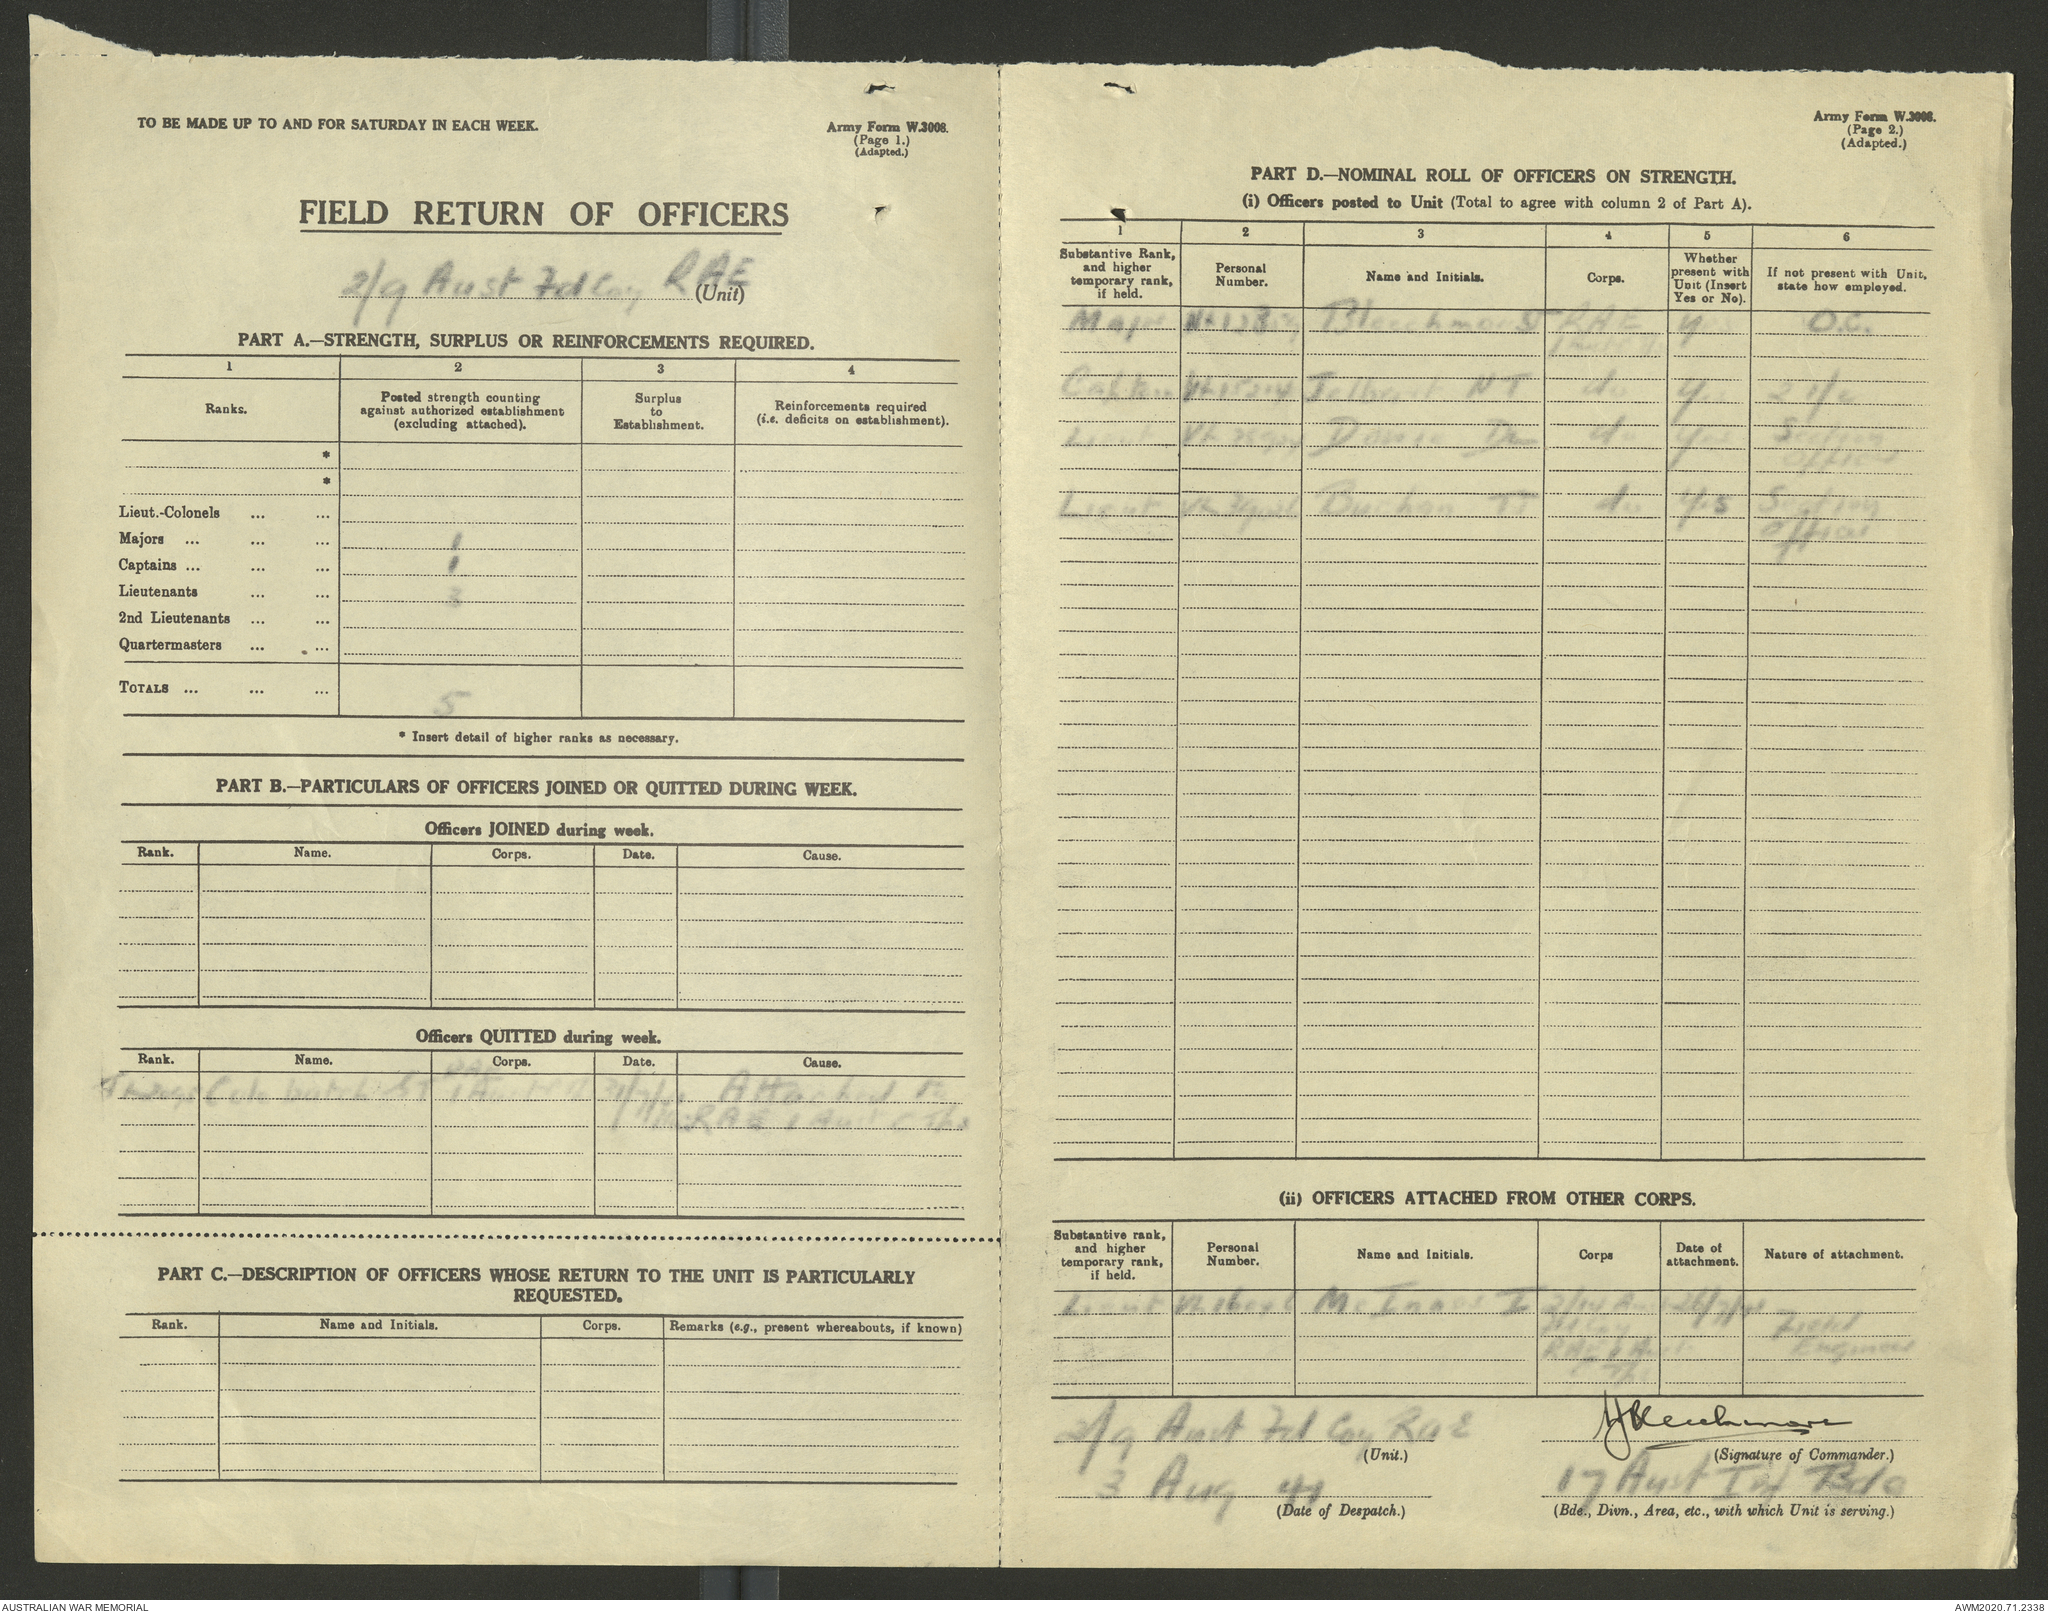 TO BE MADE UP TO AND FOR SATURDAY IN EACH WEEK.
Army Form W.3008.
(Page 1.)
(Adapted.)
FIELD RETURN OF OFFICERS
2/9 Aust Fd Coy RAE
(Unit)
PART A.—STRENGTH, SURPLUS OR REINFORCEMENTS REQUIRED.
1 2 3 4
Ranks.
Posted strength counting
against authorized establishment
(excluding attached).
Surplus
to
Establishment.
Reinforcements required
(i.e. deficits on establishment).
*
*
Lieut.-Colonels ... ...
Majors ... ... ... 1
Captains ... ... ... 1
Lieutenants ... ...
2nd Lieutenants ... ...
Quartermasters ... ...
TOTALS ... ... ... 5
* Insert detail of higher ranks as necessary.
PART B.—PARTICULARS OF OFFICERS JOINED OR QUITTED DURING WEEK.
Officers JOINED during week.
Rank. Name. Corps. Date. Cause.
Officers QUITTED during week.
Rank. Name. Corps. Date. Cause.
Attached to
RAE 1 Aust C Tps
PART C.—DESCRIPTION OF OFFICERS WHOSE RETURN TO THE UNIT IS PARTICULARLY
REQUESTED.
Rank. Name and Initials. Corps. Remarks (e.g., present whereabouts, if known)
Army Form W.3008.
(Page 2.)
(Adapted.)
PART D.—NOMINAL ROLL OF OFFICERS ON STRENGTH.
(i) Officers posted to Unit (Total to agree with column 2 of Part A).
1 2 3 4 5 6
Substantive Rank,
and higher
temporary rank,
if held.
Personal
Number.
Name and Initials.
Corps.
Whether
present with
Unit (Insert
Yes or No).
If not present with Unit,
state how employed.
Major Bleechmore RAE Yes O.C.
Captain NT do Yes 2 i/c
Lieut do Yes Section
Officer
Lieut Buchan do Yes Section
Officer
(ii) OFFICERS ATTACHED FROM OTHER CORPS.
Substantive rank,
and higher
temporary rank,
if held.
Personal
Number.
Name and Initials.
Corps
Date of
attachment.
Nature of attachment.
Lieut McInnes I
Field
Engineer
2/9 Aust Fd Coy RAE
(Unit.)
3 Aug 41
(Date of Despatch.)
Bleechmore
(Signature of Commander.)
17 Aust Inf Bde
(Bde., Divn., Area, etc., with which Unit is serving.)
AUSTRALIAN WAR MEMORIAL
AWM2020.71.2338